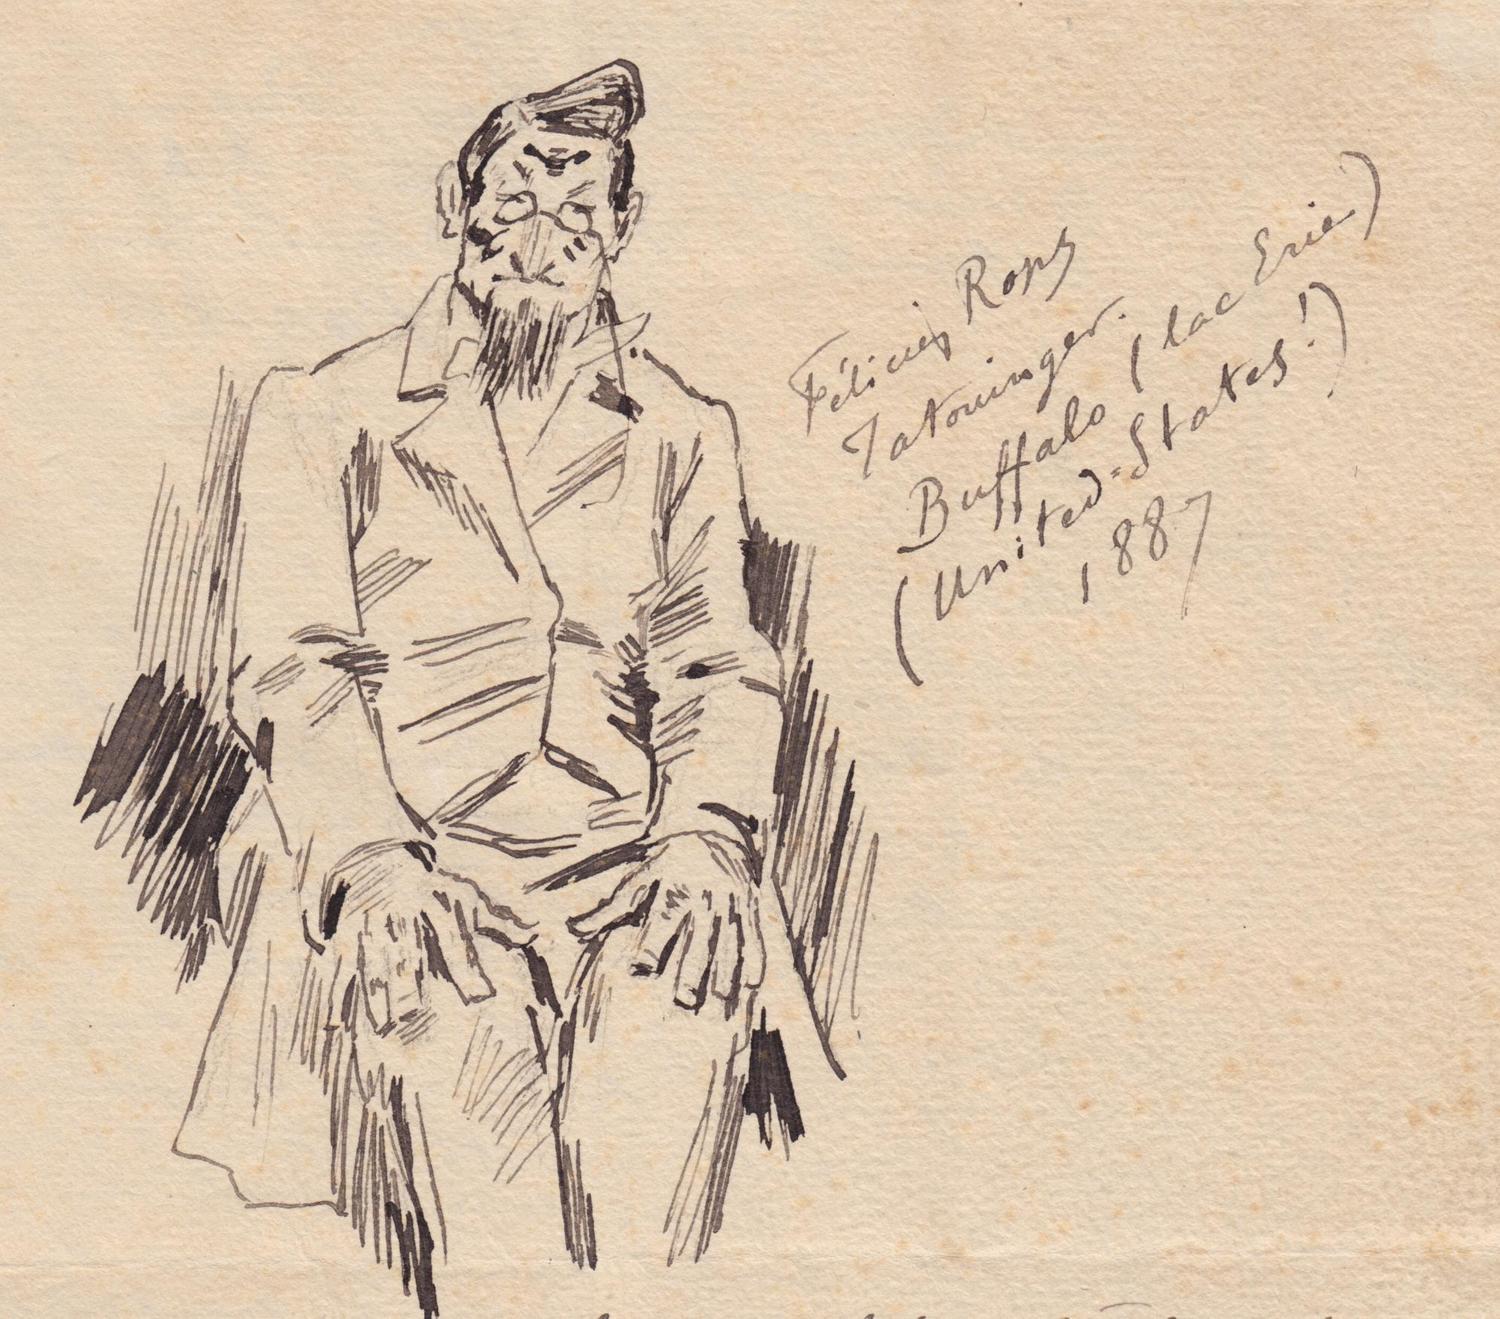 Félicien Rops
Tatouinger.
Buffalo (lac Erié)
(United=States!)
1887